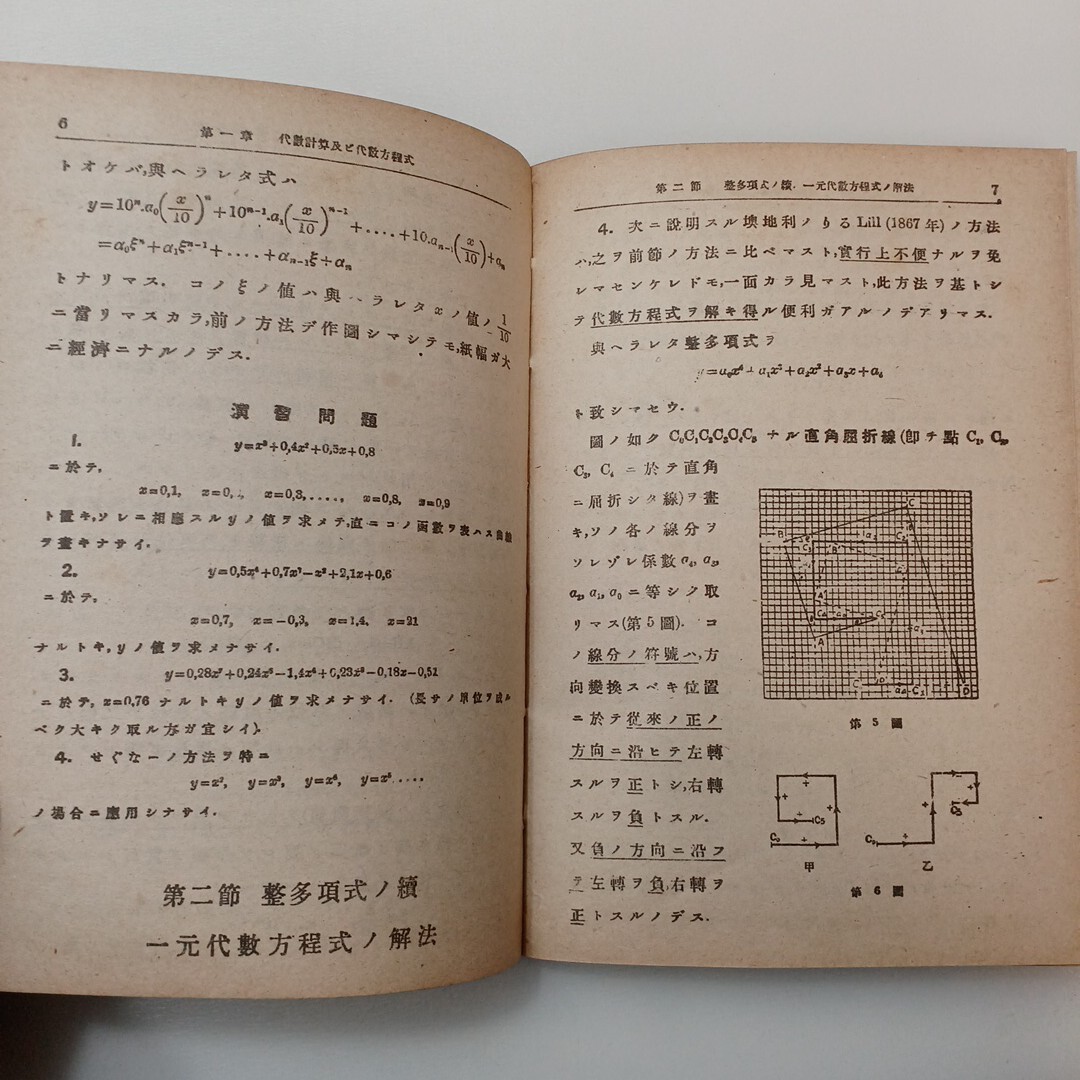 6
第一章 代數計算及ビ代數方程式
トオケバ,與ヘラレタ式ハ
y=10ⁿ.a₀(x/10)ⁿ+10ⁿ⁻¹.a₁(x/10)ⁿ⁻¹+....+10.aₙ₋₁(x/10)+aₙ
=α₀ξⁿ+α₁ξⁿ⁻¹+....+αₙ₋₁ξ+αₙ
トナリマス. コノξノ値ハ與ヘラレタxノ値ノ1/10
ニ當リマスカラ,前ノ方法デ作圖シマシテモ,紙幅ガ大
ニ經濟ニナルノデス.
演習問題
1. y=x³+0,4x²+0,5x+0,8
ニ於テ,
x=0,1, x=0, x=0,3,....., x=0,8, x=0,9
ト置キ,ソレニ相應スルyノ値ヲ求メテ,直ニコノ函數ヲ表ハス曲線
ヲ畫キナサイ.
2. y=0,5x⁴+0,7x³-x²+2,1x+0,6
ニ於テ,
x=0,7, x=-0,3, x=1,4, x=21
ナルトキ,yノ値ヲ求メナサイ.
3. y=0,28x⁷+0,24x⁵-1,4x⁴+0,23x³-0,18x-0,51
ニ於テ, x=0,76 ナルトキyノ値ヲ求メナサイ. (長サノ單位ヲ成ル
ベク大キク取ル方ガ宜シイ).
4. せぐなーノ方法ヲ特ニ
y=x², y=x³, y=x⁴, y=x⁵....
ノ場合ニ應用シナサイ.
第二節 整多項式ノ續
一元代數方程式ノ解法
第二節 整多項式ノ續. 一元代數方程式ノ解法 7
4. 次ニ說明スル墺地利ノりるLill (1867年)ノ方法
ハ,之ヲ前節ノ方法ニ比ベマスト,實行上不便ナルヲ免
レマセンケレドモ,一面カラ見マスト,此方法ヲ基トシ
テ代數方程式ヲ解キ得ル便利ガアルノデアリマス.
與ヘラレタ整多項式ヲ
y=a₀x⁴+a₁x³+a₂x²+a₃x+a₄
ト致シマセウ.
圖ノ如ク C₀C₁C₂C₃C₄C₅ ナル直角屈折線(卽チ點C₁, C₂,
C₃, C₄ ニ於テ直角
ニ屈折シタ線)ヲ畫
キ,ソノ各ノ線分ヲ
ソレゾレ係數a₄, a₃,
a₂, a₁, a₀ニ等シク取
リマス(第5圖). コ
ノ線分ノ符號ハ,方
向變換スベキ位置
ニ於テ從來ノ正ノ
方向ニ沿ヒテ左轉
スルヲ正トシ,右轉
スルヲ負トスル.
又負ノ方向ニ沿フ
テ左轉ヲ負,右轉ヲ
正トスルノデス.
C
B
B'
A'
A
D
第5圖
C₀
C₅
+
甲
C₀
C₅
+
乙
第6圖